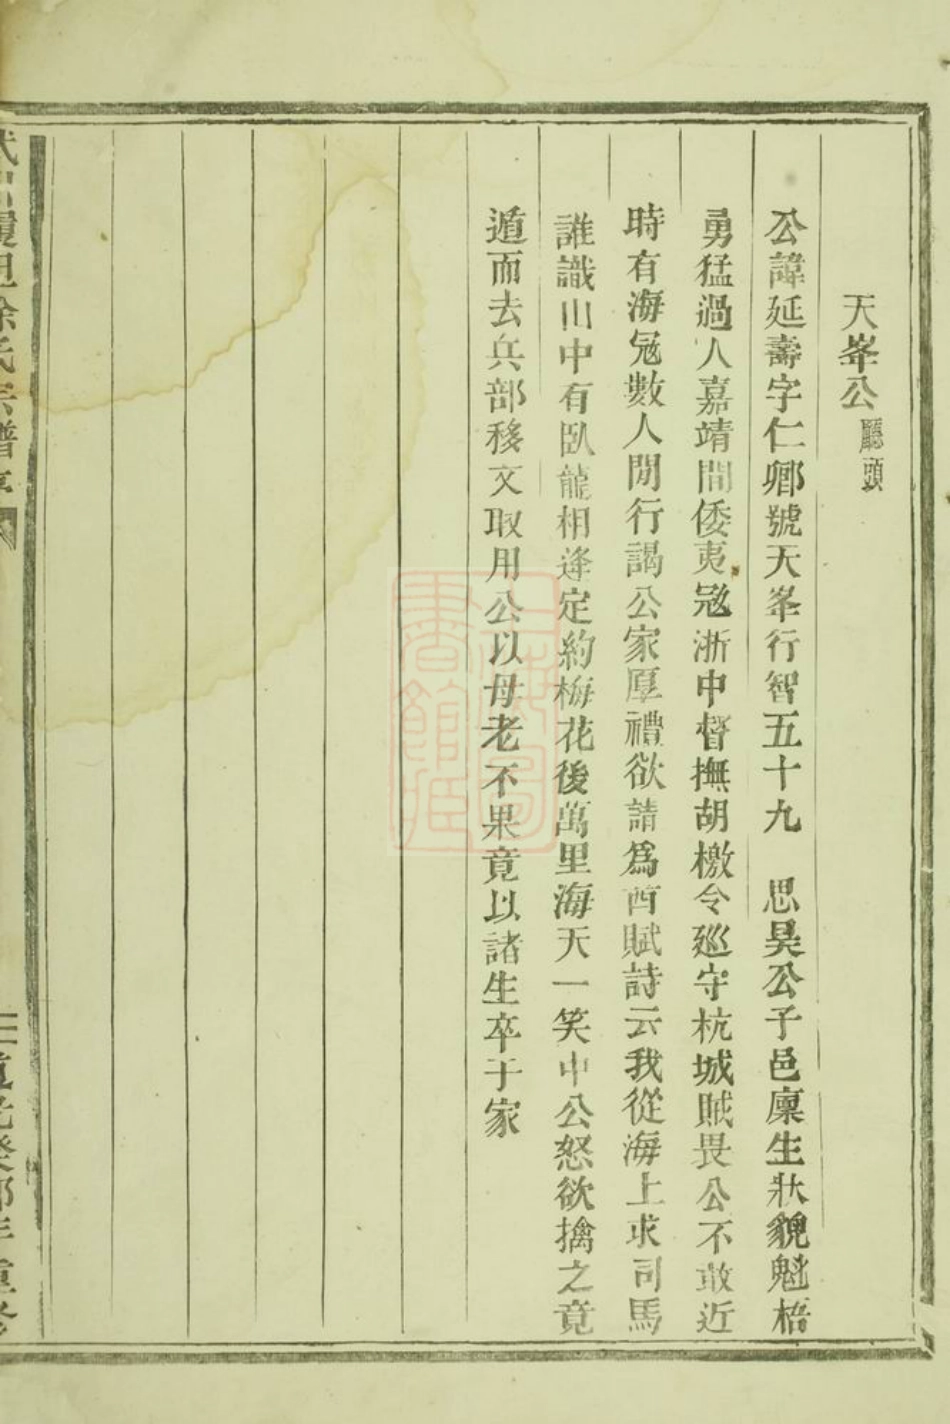 天峯公廳頭
公諱延壽字仁卿號天峯行智五十九　思昊公子邑廩生狀貌魁梧
勇猛過人嘉靖間倭夷宼浙中督撫胡檄令廵守杭城賊畏公不敢近
時有海宼數人閒行謁公家厚禮欲請爲酋賦詩云我從海上求司馬
誰識山中有臥龍相逢定約梅花後萬里海天一笑中公怒欲擒之竟
遁而去兵部移文取用公以母老不果竟以諸生卒于家
徐氏宗譜
道光癸卯年重修